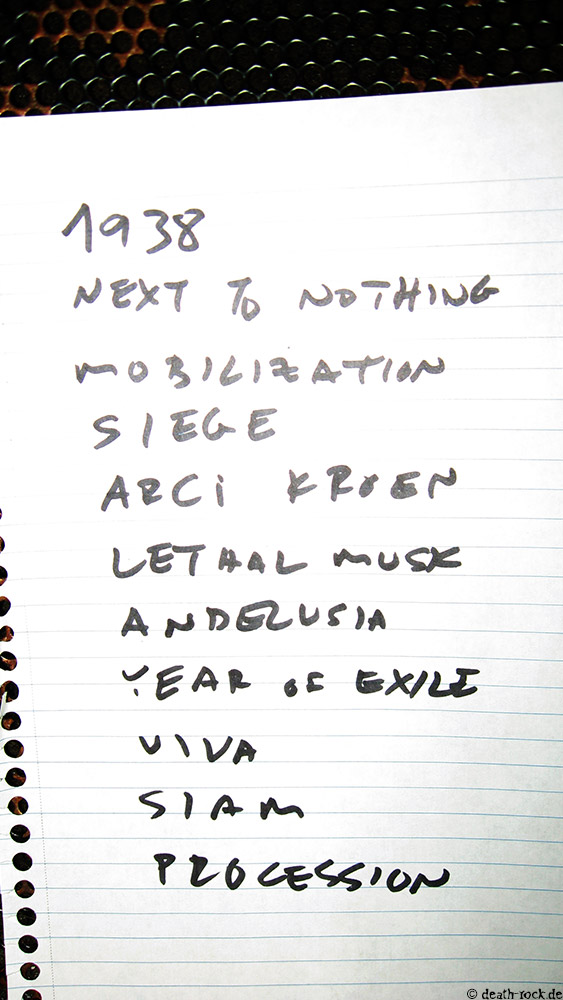 1938
NEXT TO NOTHING
MOBILIZATION
SIEGE
ARCI KROEN
LETHAL MUSK
ANDELUSIA
YEAR OF EXILE
VIVA
SIAM
PROCESSION
© death-rock.de